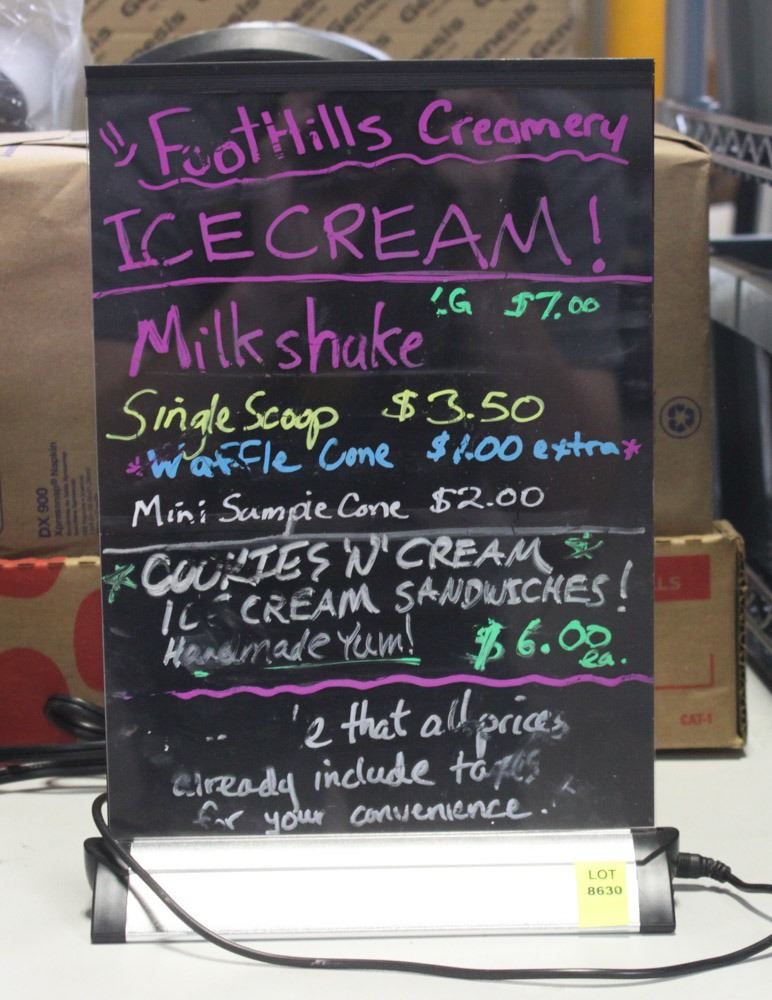 Genesis Genesis Genesis
FootHills Creamery
ICE CREAM!
LG $7.00
Milkshake
Single Scoop $3.50
*Waffle Cone $1.00 extra*
Mini Sample Cone $2.00
COOKIES 'N' CREAM
ICE CREAM SANDWICHES!
Handmade Yum! $6.00
ea.
that all prices
already include
for your convenience.
DX 900
Xpressnap® Napkin
CAT-1
LOT
8630